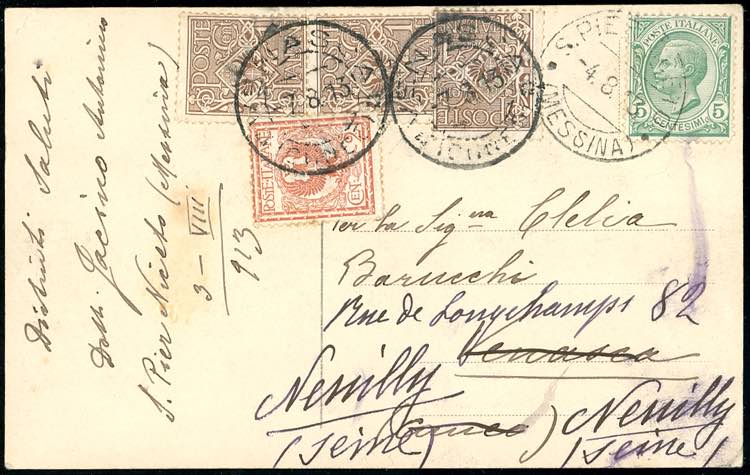 Distinti Saluti
Dott. Jacino Antonino
S. Pier Niceto (Messina)
3 - VIII
913
POSTE ITALIANE
5 CENTESIMI 5
POSTE ITALIANE
CENT
S. PIE
-4.8.
(MESSINA)
8.13
8.13
Per la Sig.na Clelia
Barucchi
Rue de Longchamps 82
Venasca
Neuilly
(Seine)
(Cuneo)
Neuilly
(Seine)